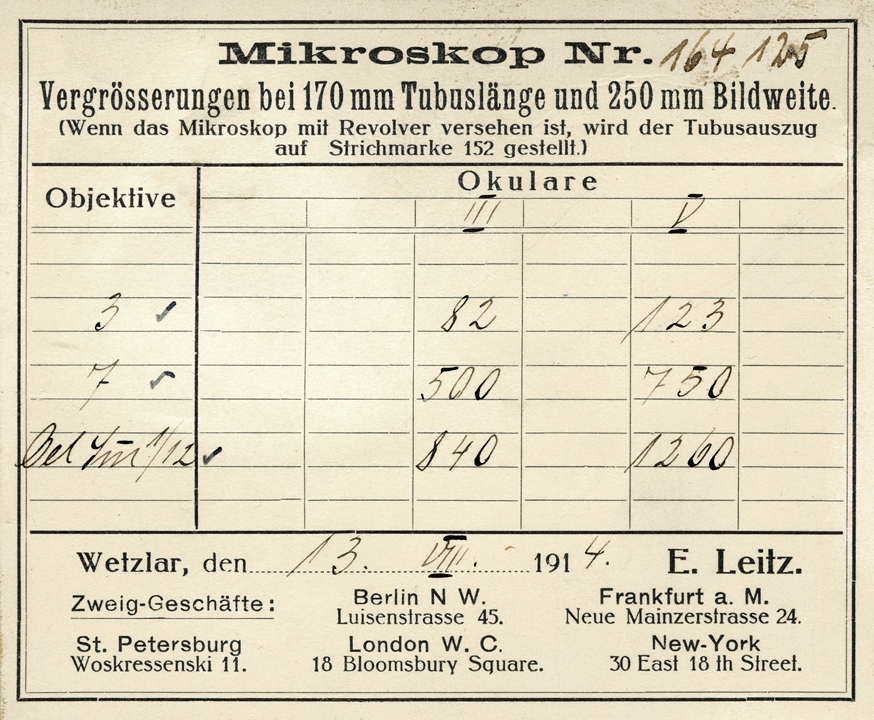 Mikroskop Nr. 164 125
Vergrösserungen bei 170 mm Tubuslänge und 250 mm Bildweite.
(Wenn das Mikroskop mit Revolver versehen ist, wird der Tubusauszug
auf Strichmarke 152 gestellt.)
Objektive Okulare
III V
3 ✓ 82 123
7 ✓ 500 750
Oel Im 1/12 ✓ 840 1260
Wetzlar, den 13. VIII. 1914. E. Leitz.
Zweig-Geschäfte: Berlin N W. Frankfurt a. M.
Luisenstrasse 45. Neue Mainzerstrasse 24.
St. Petersburg London W. C. New-York
Woskressenski 11. 18 Bloomsbury Square. 30 East 18 th Street.